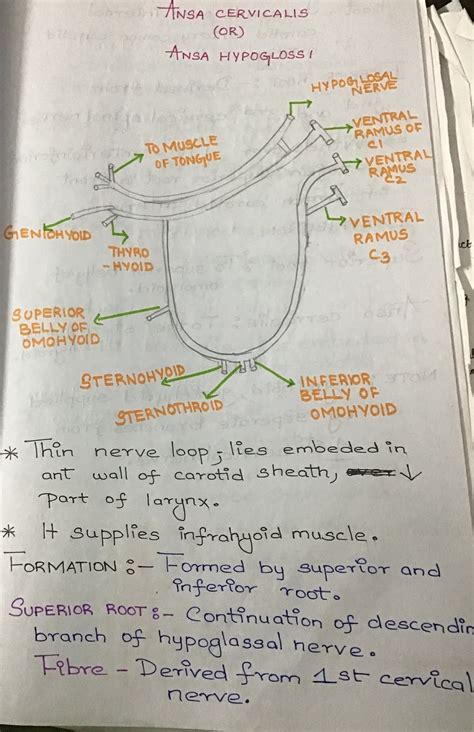 ANSA CERVICALIS
(OR)
ANSA HYPOGLOSSI
HYPOGLOSAL
NERVE
VENTRAL
RAMUS OF
C1
VENTRAL
RAMUS
C2
VENTRAL
RAMUS
C3
TO MUSCLE
OF TONGUE
GENIOHYOID
THYRO
-HYOID
SUPERIOR
BELLY OF
OMOHYOID
STERNOHYOID
STERNOTHROID
INFERIOR
BELLY OF
OMOHYOID
* Thin nerve loop, lies embeded in
ant wall of carotid sheath, ↓
part of larynx.
* It supplies infrahyoid muscle.
FORMATION :- Formed by superior and
inferior root.
SUPERIOR ROOT :- Continuation of descendin
branch of hypoglassal nerve.
Fibre - Derived from 1st cervical
nerve.